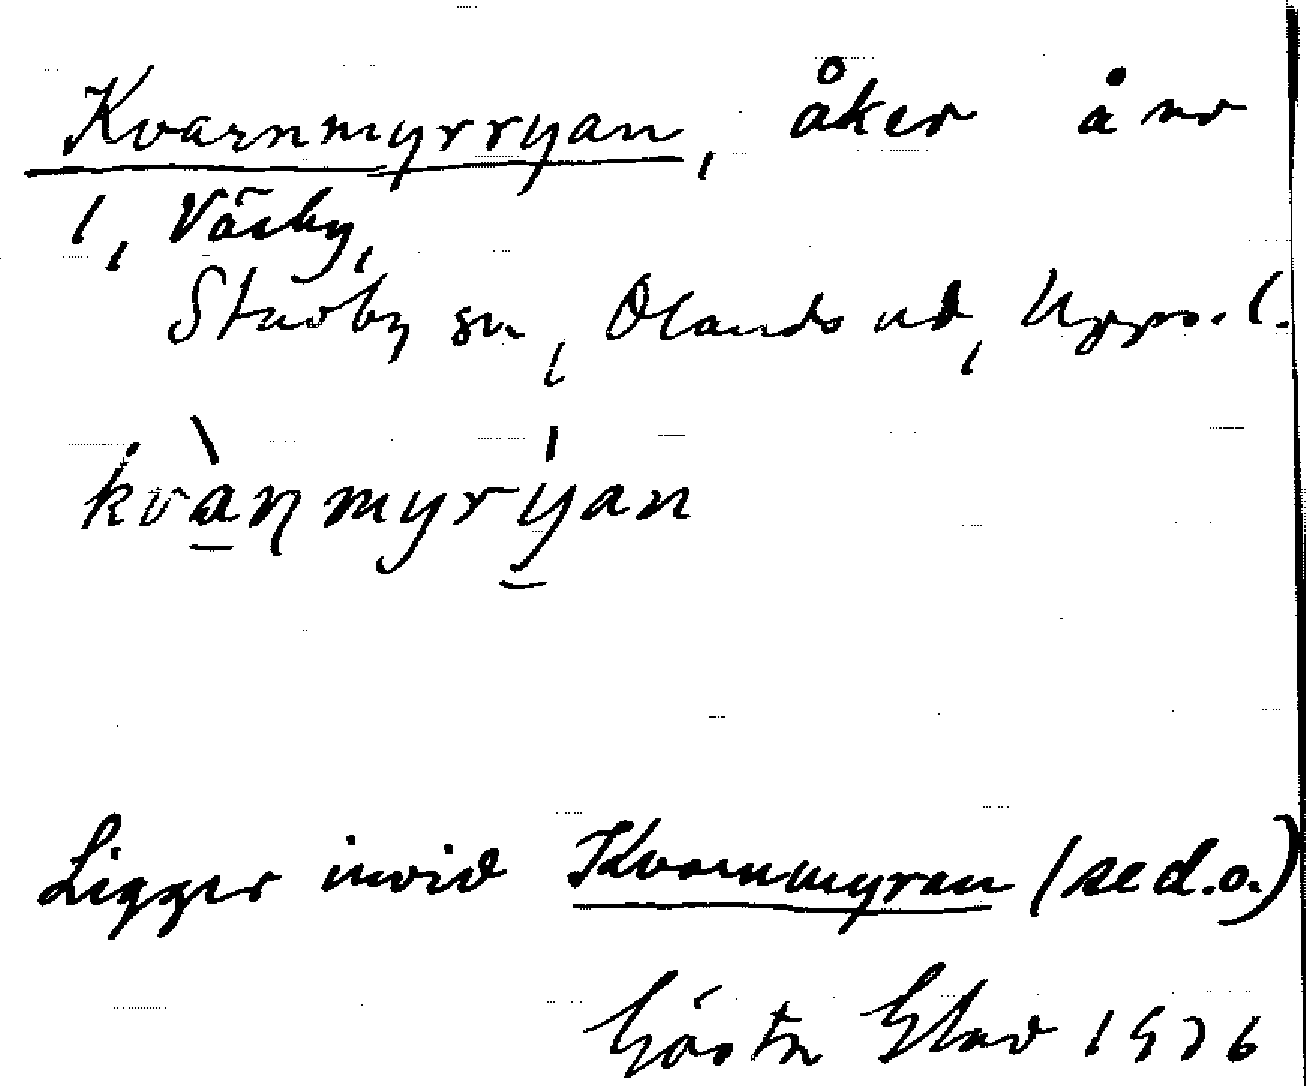 Kvarnmyrryan, åker å nr
1, Väsby,
Stavby sn, Olands hd, Upps. l.
kvàn̠myrýan
Ligger invid Kvarnmyran (se d.o.)
Gösta Elav 1936